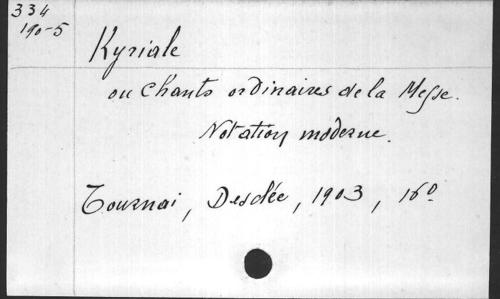 334
190-5
Kyriale
ou Chants ordinaires de la Messe.
Notation moderne.
Tournai, Desclée, 1903, 16º